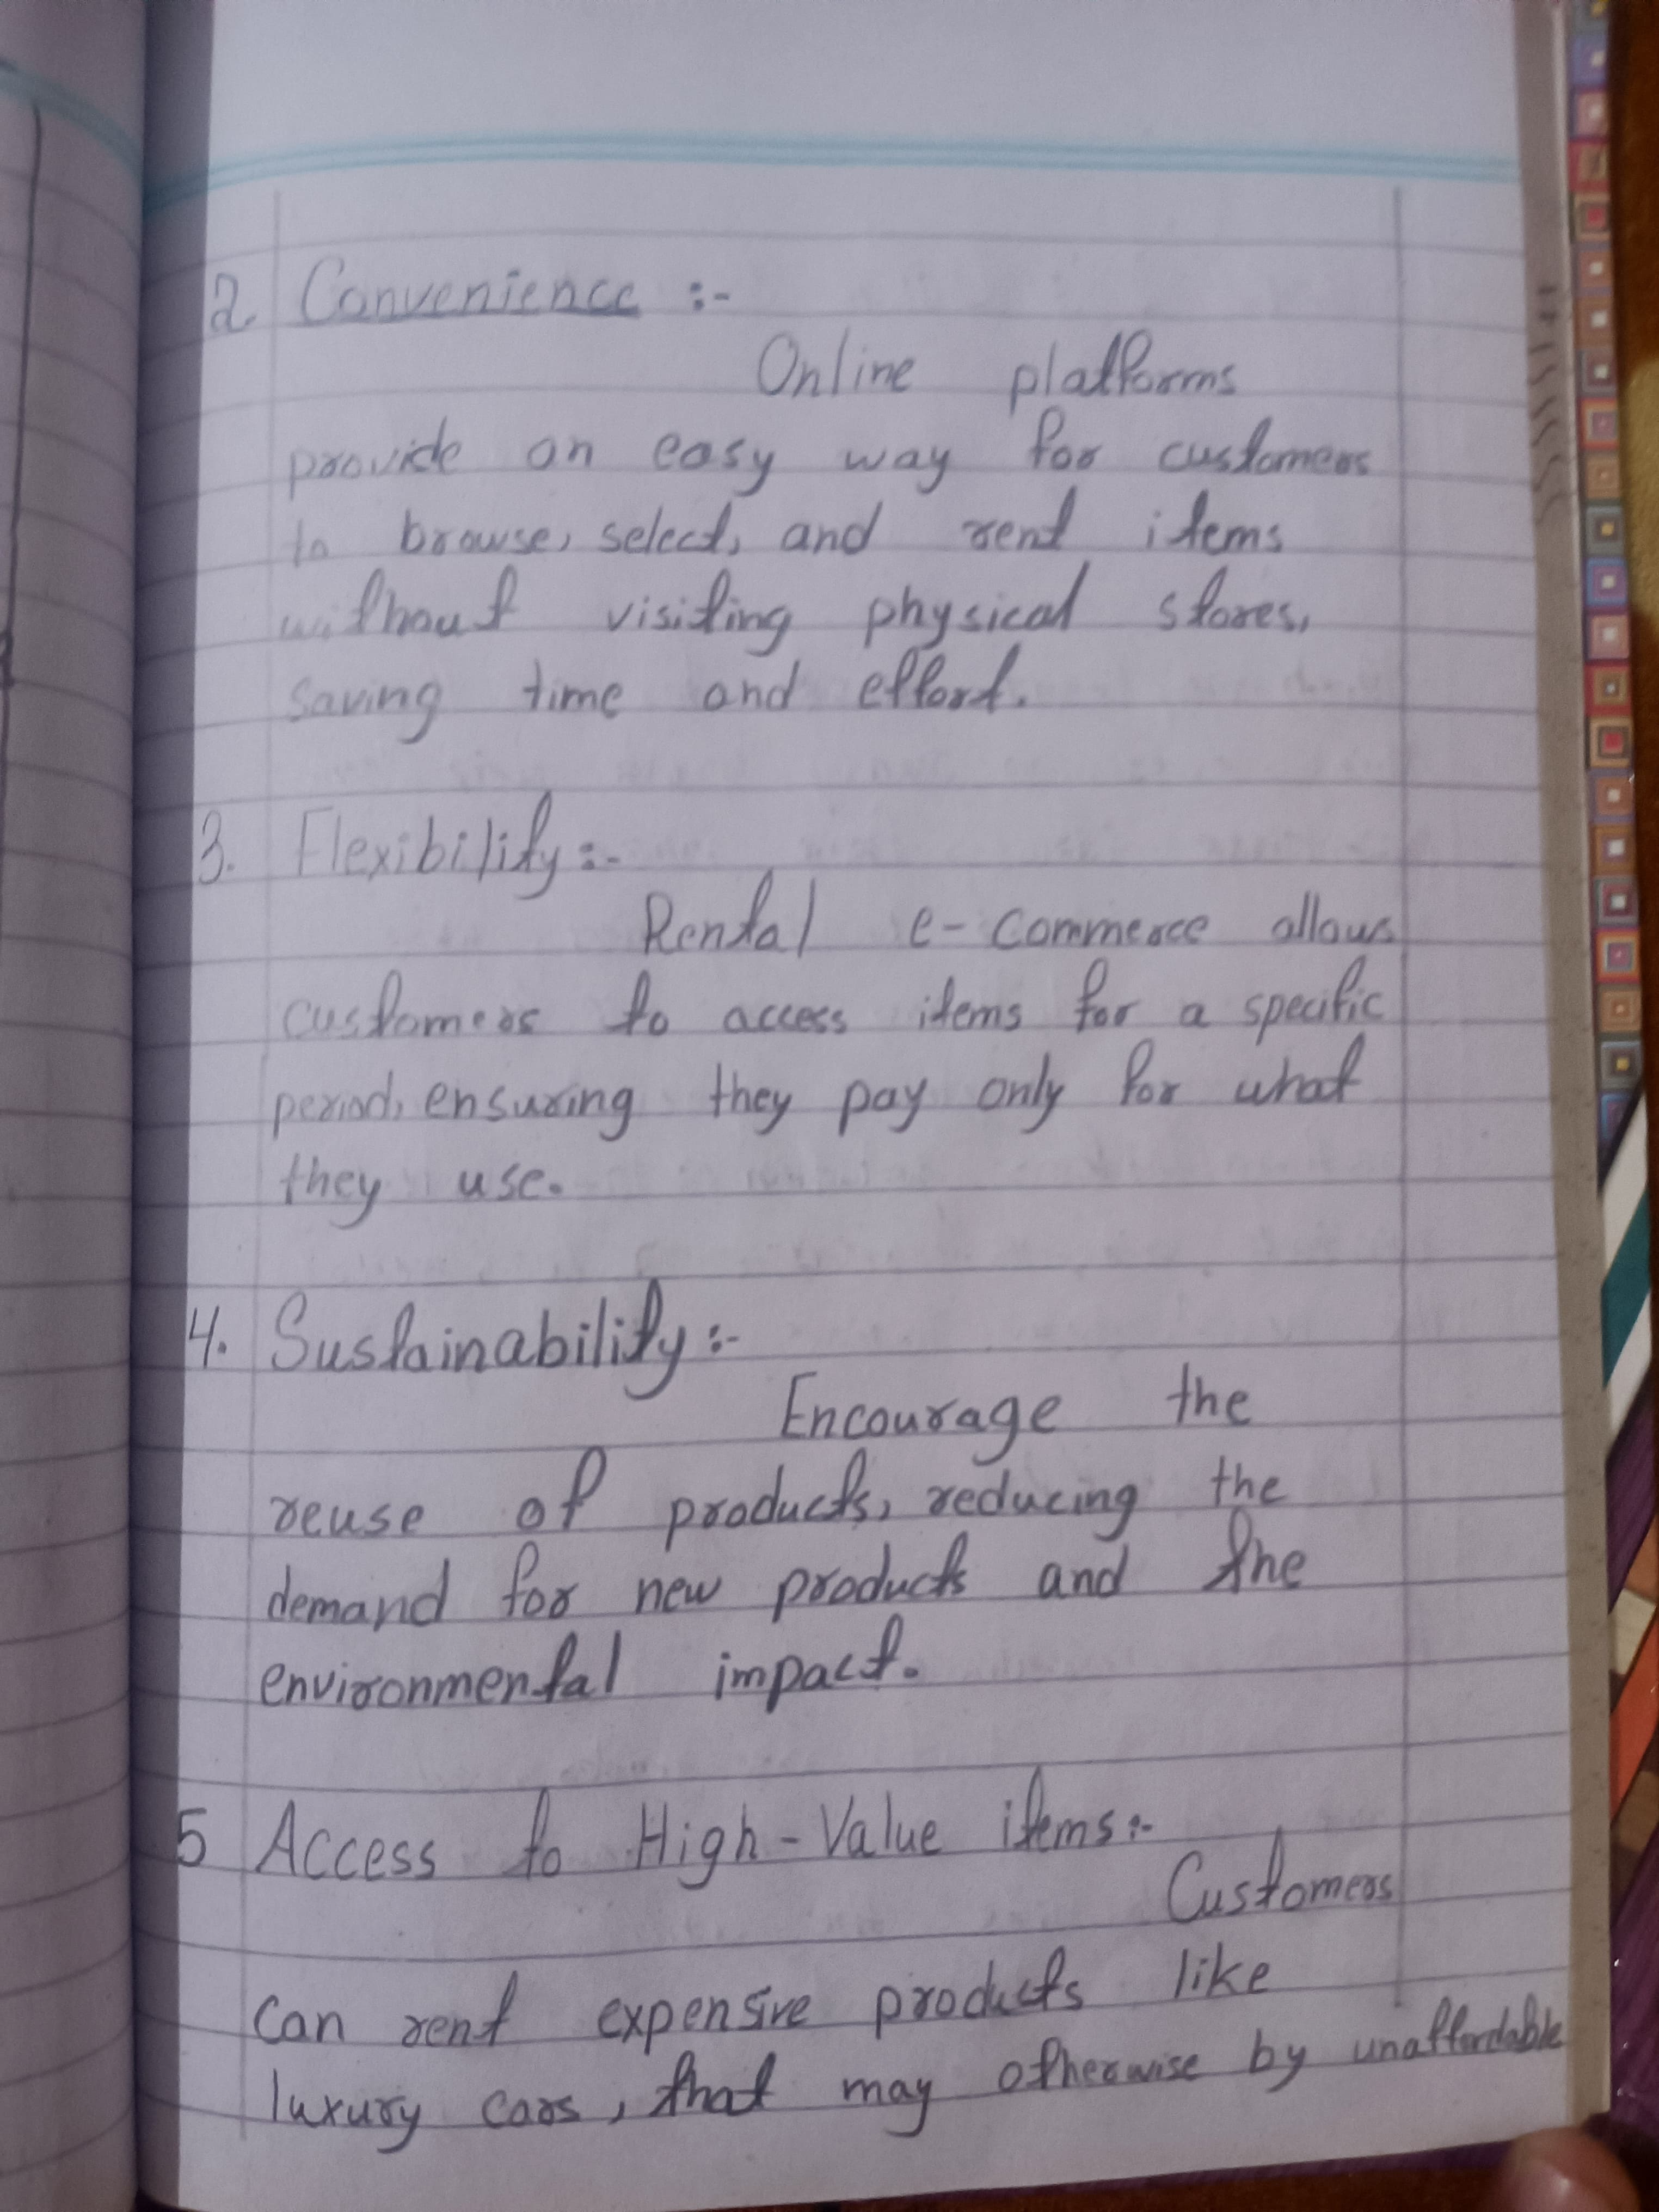 2. Convenience :-
Online platforms
provide an easy way for customers
to browse, select, and rent items
without visiting physical stores,
saving time and effort.
3. Flexibility :-
Rental e-commerce allows
customers to access items for a specific
period, ensuring they pay only for what
they use.
4. Sustainability :-
Encourage the
reuse of products, reducing the
demand for new products and the
environmental impact.
5 Access to High-Value items :-
Customers
can rent expensive products like
luxury cars, that may otherwise by unaffordable